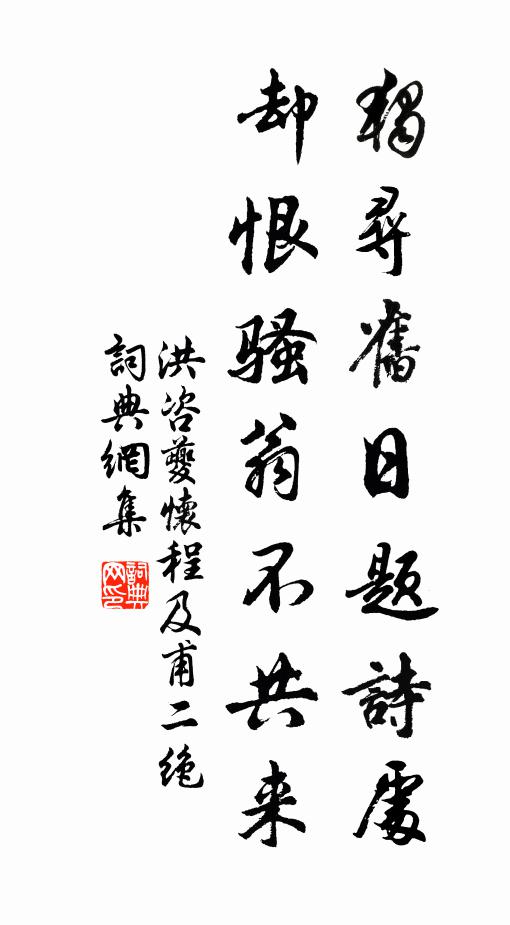 獨尋舊日題詩處
却恨騷翁不共来
洪咨夔懷程及甫二绝
詞典網集
詞典网印